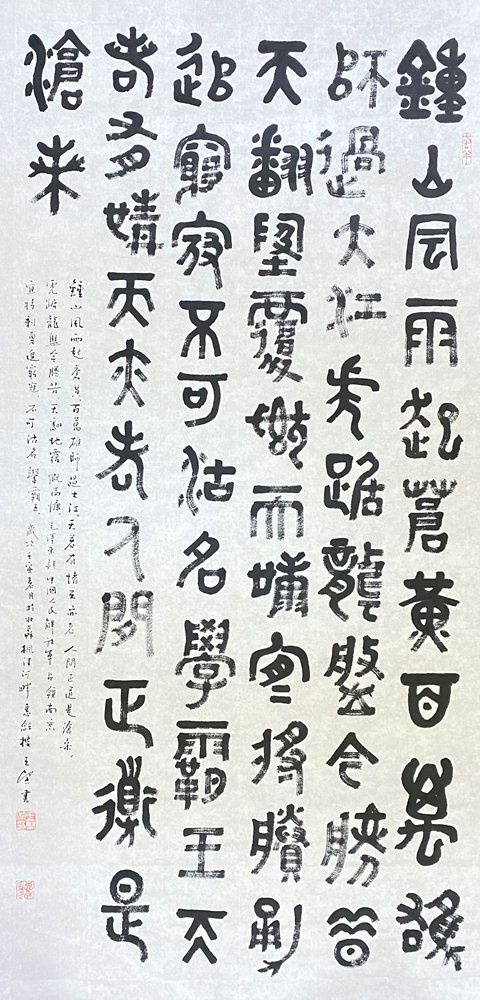 鍾山風雨起蒼黃百萬雄
師過大江虎踞龍盤今勝昔
天翻墬覆慨而慷宜將賸勇
追窮寇不可沽名學霸王天
若有情天亦老人間正道是
滄桑
鐘山風雨起蒼黃百萬雄師過大江天若有情天亦老人間正道是滄桑
虎踞龍盤今勝昔天翻地覆慨而慷毛澤東詩中國人民解放軍占領南京
宜將剩勇追窮寇不可沽名學霸王歲次壬寅春月於河畔王書